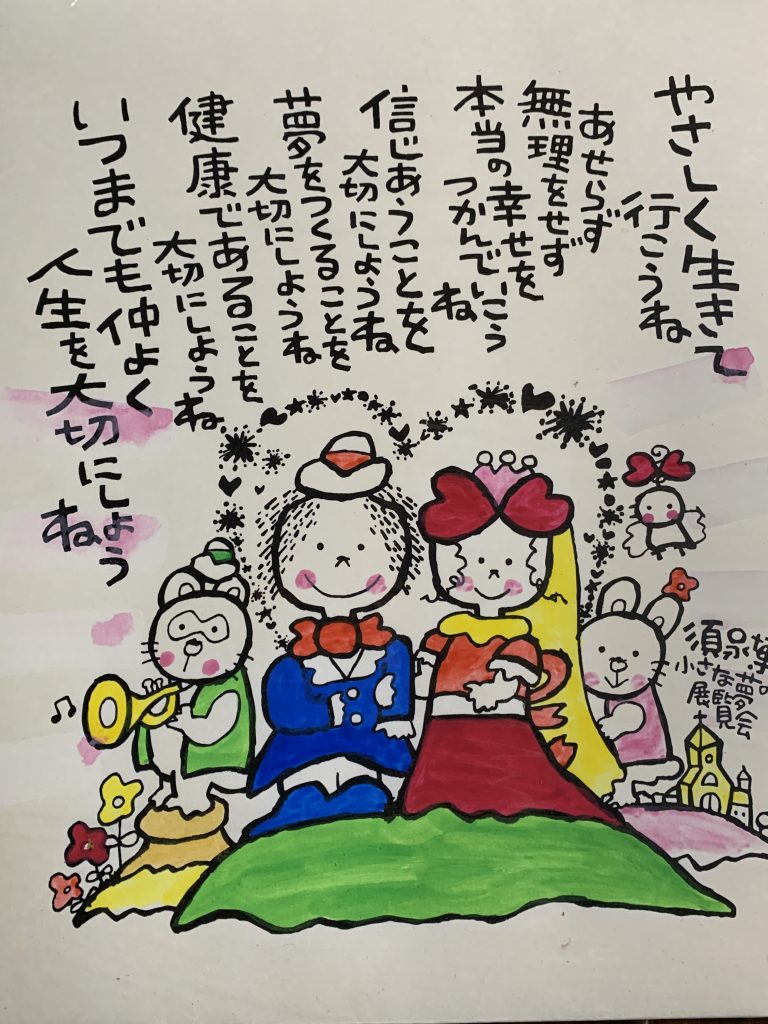 やさしく生きて
行こうね
あせらず
無理をせず
本当の幸せを
つかんでいこう
ね
信じあうことを
大切にしようね
夢をつくることを
大切にしようね
健康であることを
大切にしようね
いつまでも仲よく
人生を大切にしよう
ね
小さな夢の
展覧会